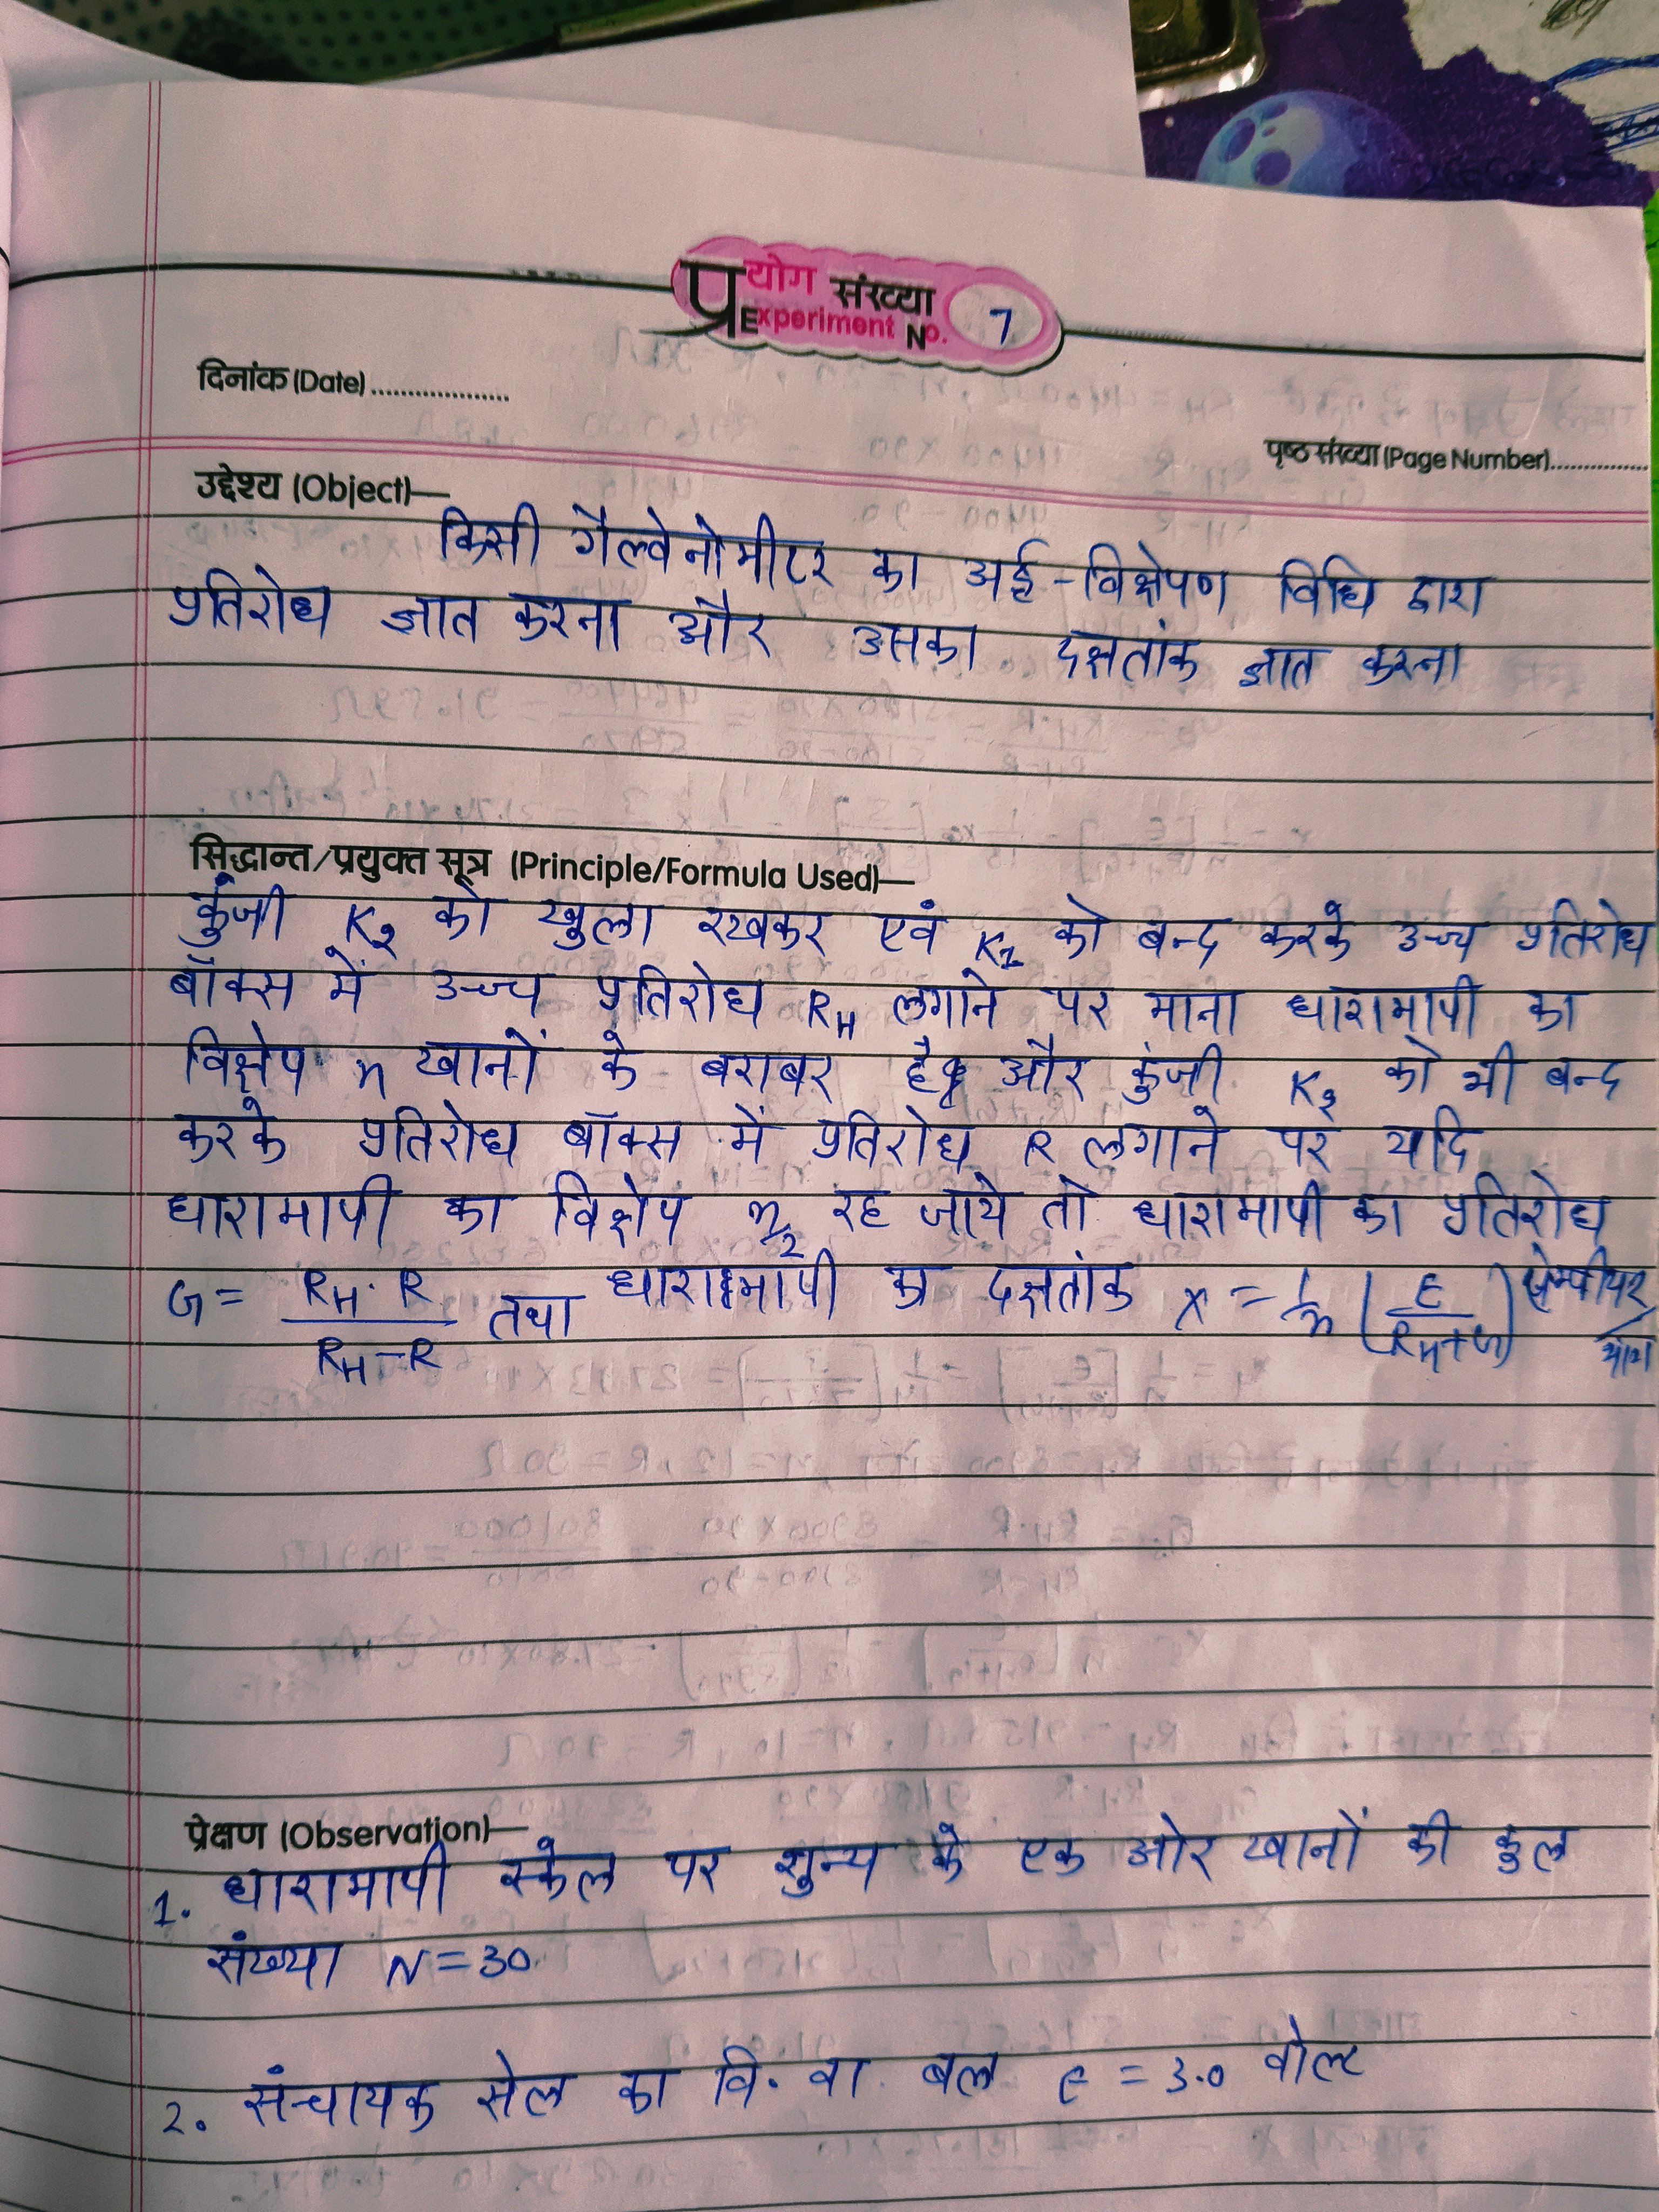 प्रयोग संख्या
Experiment No. 7
दिनांक (Date)...................
पृष्ठ संख्या (Page Number)...............
उद्देश्य (Object)—
किसी गैल्वेनोमीटर का अर्द्ध-विक्षेपण विधि द्वारा
प्रतिरोध ज्ञात करना और उसका दक्षतांक ज्ञात करना
सिद्धान्त/प्रयुक्त सूत्र (Principle/Formula Used)—
कुंजी K₂ को खुला रखकर एवं K₁ को बन्द करके उच्च प्रतिरोध
बॉक्स में उच्च प्रतिरोध R_H लगाने पर माना धारामापी का
विक्षेप n खानों के बराबर है और कुंजी K₂ को भी बन्द
करके प्रतिरोध बॉक्स में प्रतिरोध R लगाने पर यदि
धारामापी का विक्षेप n/2 रह जाये तो धारामापी का प्रतिरोध
G = R_H · R / R_H - R तथा धारामापी का दक्षतांक x = 1/n (E / R_H + G) ऐम्पीयर/भाग
प्रेक्षण (Observation)—
1. धारामापी स्केल पर शुन्य के एक ओर खानों की कुल
संख्या N = 30
2. संचायक सेल का वि. वा बल E = 3.0 वोल्ट